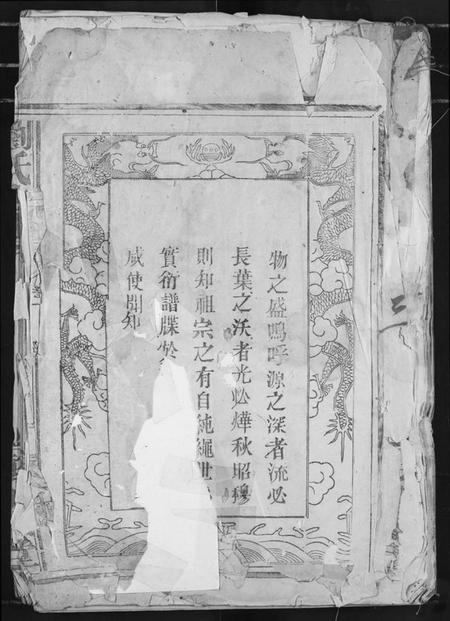 物之盛嗚呼源之深者流必
長葉之沃者光必燁秋昭穆
則知祖宗之有自純繩世
實衍譜牒於
咸使聞知
劉氏
三